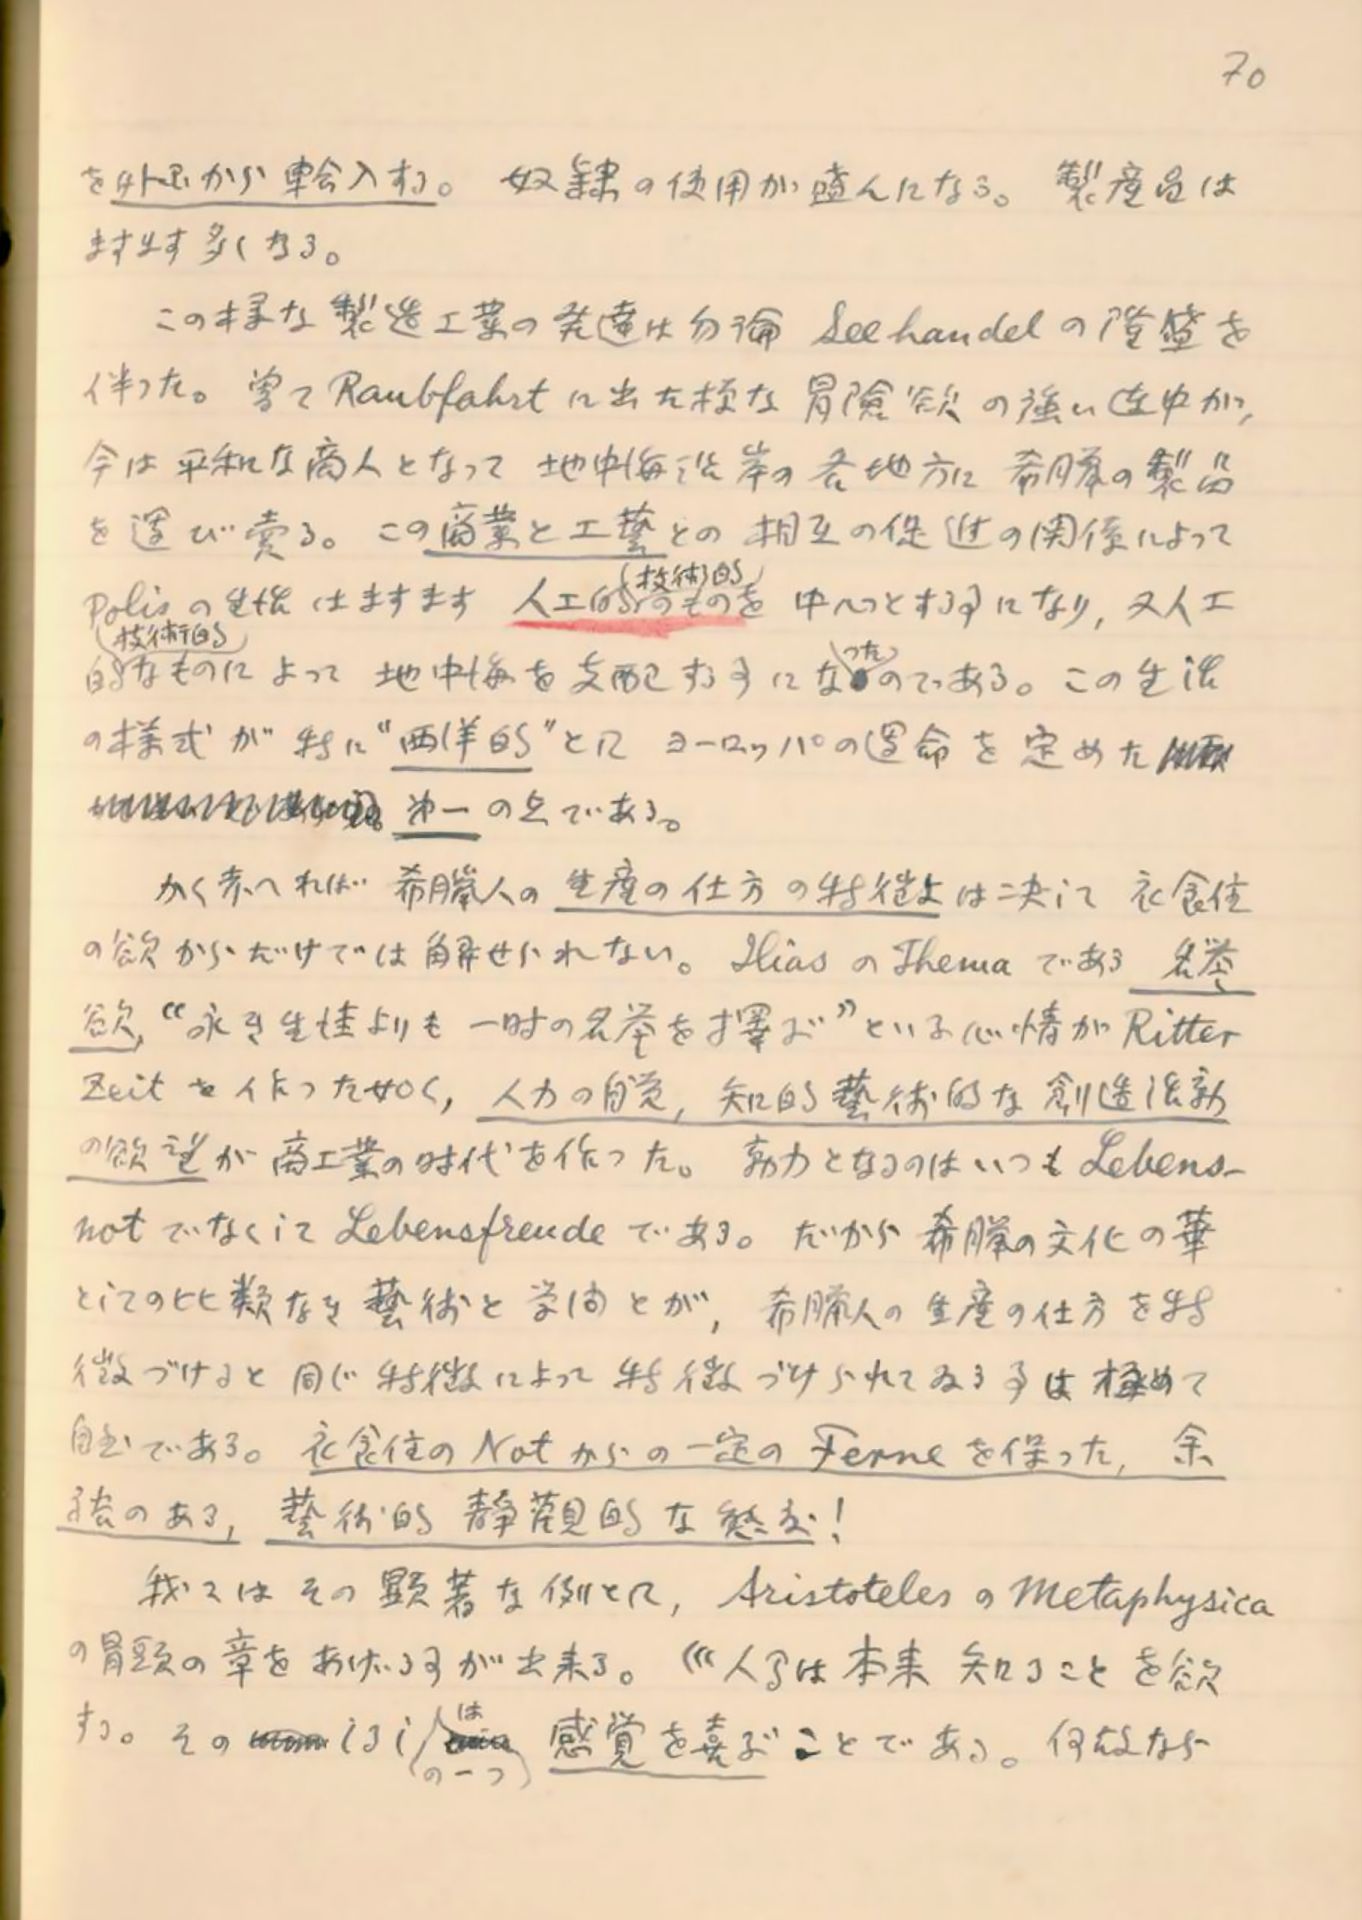 70
を外国から輸入する。 奴隷の使用が盛んになる。 製産品は
ますます多くなる。
この様な製造工業の発達は勿論 Seehandel の隆盛を
伴った。 曾て Raubfahrt に出た様な冒険欲の強い連中が,
今は平和な商人となって 地中海沿岸の各地方に 希臘の製品
を運び売る。 この商業と工藝との 相互の促進の関係によって
(技術的)
Polis の生活はますます 人工的のものを 中心とする事になり, 又人工
(技術的) った
的なものによって 地中海を支配する事になのである。この生活
の様式が 特に“西洋的”として ヨーロッパの運命を定めた
第一の点である。
かく考へれば 希臘人の 生産の仕方の特徴は決して 衣食住
の欲からだけでは解せられない。 Ilias の Thema である 名挙
欲, “永き生活よりも 一時の名挙を擇ぶ”といふ心情が Ritter
Zeit を作った如く, 人力の自覚, 知的藝術的な創造活動
の欲望が商工業の時代を作った。 動力となるのはいつも Lebens-
not でなくして Lebensfreude である。 だから 希臘の文化の華
としての比類なき藝術と学問とが, 希臘人の生産の仕方を特
徴づけると 同じ特徴によって 特徴づけられてゐる事は 極めて
自然である。 衣食住の Not からの一定の Ferne を保った, 余
裕のある, 藝術的 静観的な態度!
我々はその顕著な例として, Aristoteles の Metaphysica
の冒頭の章をあげる事が出来る。 《“人間は本来 知ることを欲
は
する。その しるし 感覚を喜ぶことである。何故なら
(の一つ)